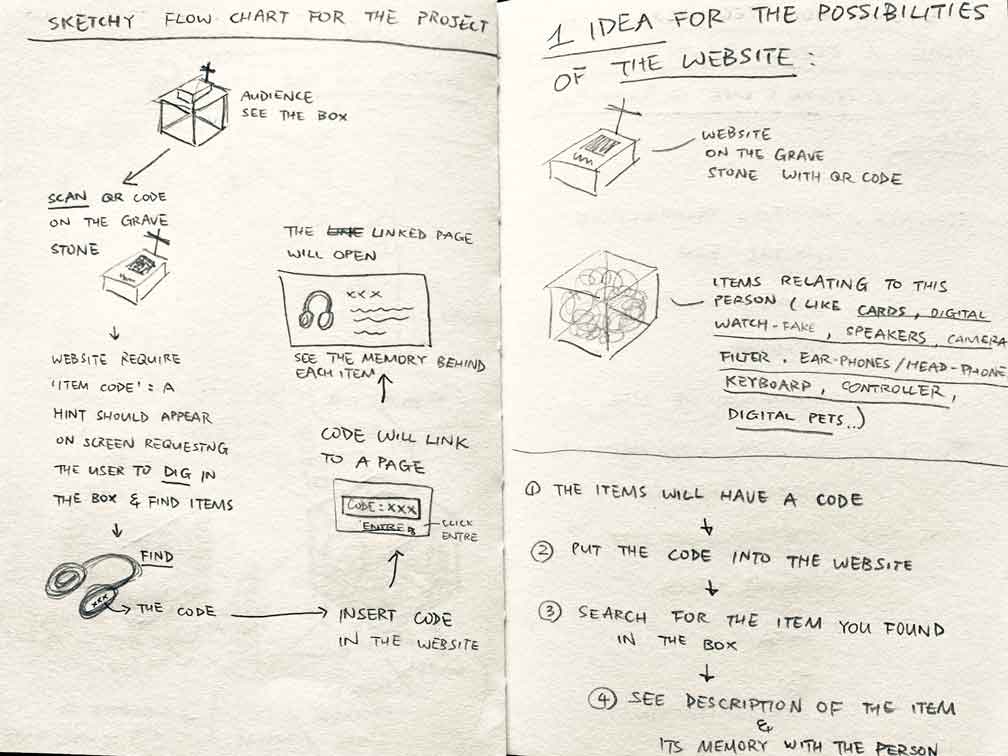 SKETCHY FLOW CHART FOR THE PROJECT
AUDIENCE
SEE THE BOX
SCAN QR CODE
ON THE GRAVE
STONE
WEBSITE REQUIRE
'ITEM CODE' : A
HINT SHOULD APPEAR
ON SCREEN REQUESTNG
THE USER TO DIG IN
THE BOX & FIND ITEMS
FIND
xxx
THE CODE
INSERT CODE
IN THE WEBSITE
CODE : XXX
ENTRE
CLICK
ENTRE
CODE WILL LINK
TO A PAGE
SEE THE MEMORY BEHIND
EACH ITEM
xxx
THE LINK LINKED PAGE
WILL OPEN
1 IDEA FOR THE POSSIBILITIES
OF THE WEBSITE :
WEBSITE
ON THE GRAVE
STONE WITH QR CODE
ITEMS RELATING TO THIS
PERSON ( LIKE CARDS, DIGITAL
WATCH-FAKE, SPEAKERS, CAMERA
FILTER, EAR-PHONES/HEAD-PHONE
KEYBOARD, CONTROLLER,
DIGITAL PETS..)
① THE ITEMS WILL HAVE A CODE
② PUT THE CODE INTO THE WEBSITE
③ SEARCH FOR THE ITEM YOU FOUND
IN THE BOX
④ SEE DESCRIPTION OF THE ITEM
&
ITS MEMORY WITH THE PERSON